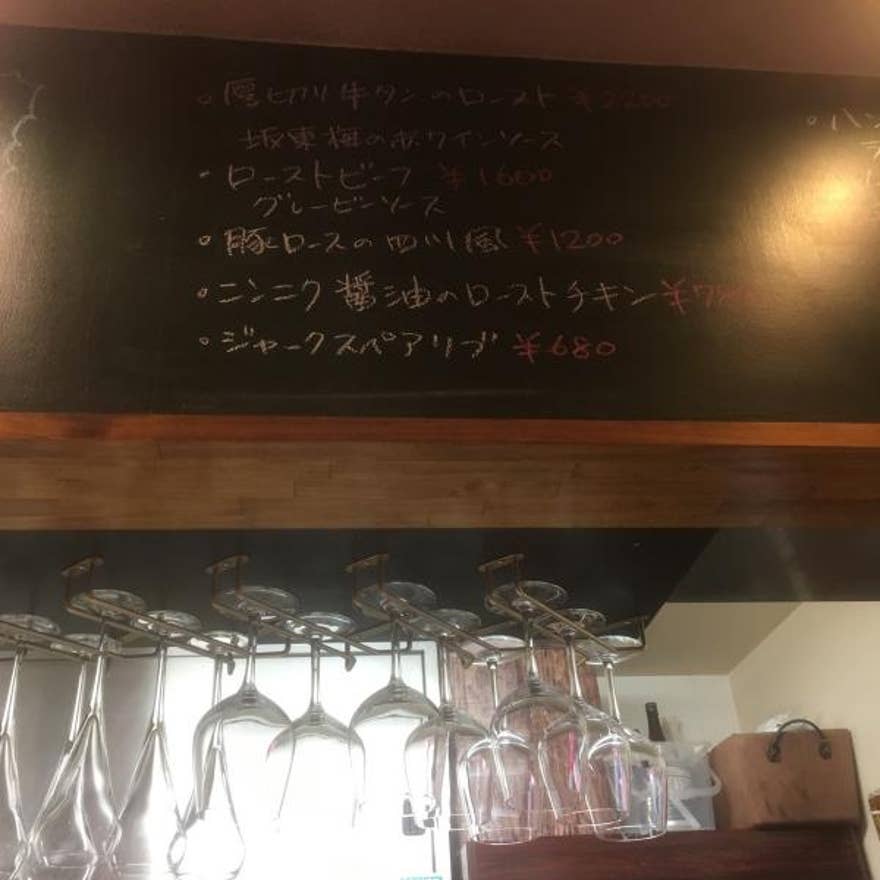 ・厚切り牛タンのロースト ¥2200
坂東梅の赤ワインソース
・ローストビーフ ¥1600
グレービーソース
・豚ロースの四川風 ¥1200
・ニンニク醤油のローストチキン
・ジャークスペアリブ ¥680